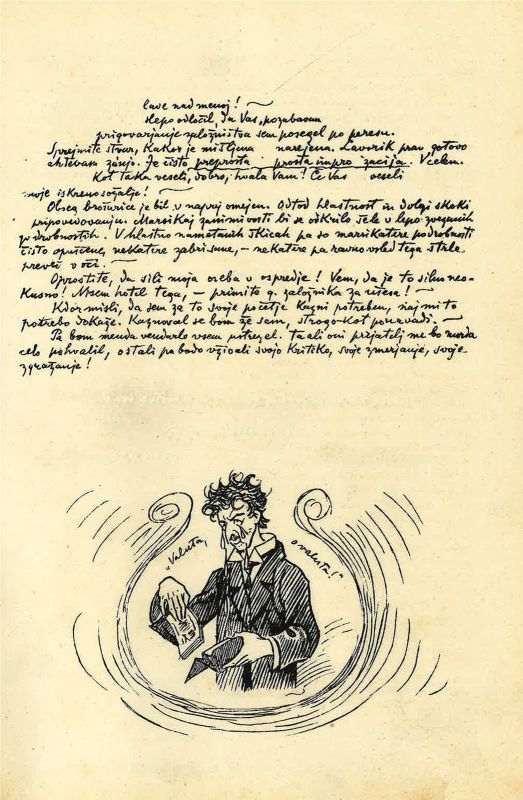 lave nad menoj! —
slepo odločil, da Vas, pozabavam
prigovarjanje založništva sem posegel po peresu.
Sprejmite stvar, kakor je mišljena narejena. Lavorik prav gotovo
ahtevam zanjo. Je čisto preprosta - prosta impro zacija. Vcelem.
Kot taka veseli, dobro, hvala Vam! Če Vas veseli
moje iskreno sožalje! —
Obseg brošurice je bil v naprej omejen. Odtod hlastnost in dolgi skoki
pripovedovanju. Marsikaj zanimivosti bi se odkrilo šele v lepo zvezanih
podrobnostih. V hlastno nametanih skicah pa so marikatere podrobnosti
čisto opuščene, nekatere zabrisane, — nekatere pa ravno vsled tega štrle
preveč v oči. —
Oprostite, da sili moja oseba v ospredje! Vem, da je to silno neo-
kusno! Nisem hotel tega, — primite g. založnika za ušesa! —
Kdor misli, da sem za to svoje početje kazni potreben, naj mi to
potrebo dokaže. Kaznoval se bom že sam, strogo - kot ponavadi. —
Pa bom menda vendarle vsem ustregel. Ta ali oni prijatelj me bo morda
celo pohvalil, ostali pa bodo vživali svojo kritiko, svoje zmerjanje, svoje
zgražanje!
"Valuta,
o valuta!"